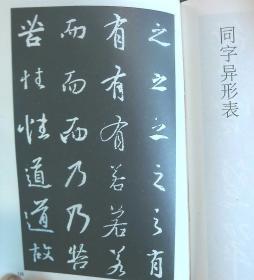 同字异形表
之之之之之有
有有有若若若
而而而乃乃
性性道道故